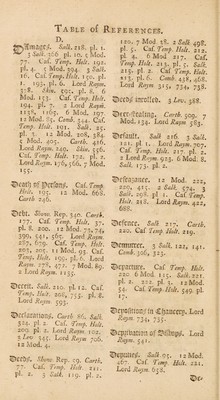 TABLE OF REFERENCES.
D.
Damages. Salk. 218. pl. 1.
3 Salk. 266. pl. 10. 5 Mod.
77. Caf. Temp. Holt. 191.
pl. 4. 5 Mod. 29. 3 Salk.
16. Caf. Temp. Holt. 190. pl.
1. 195. pl. 6. Lord Raym.
318. Skin. 591. pl. 6. 6
Mod. 153. Caf. Temp. Holt.
194. pl. 7. 2 Lord Raym.
1138, 1167. 6 Mod. 197.
12 Mod. 87. Comb. 324. Caf.
Temp. Holt. 191. Salk. 25.
pl. 3. 12 Mod. 206, 384.
5 Mod. 405. Carth. 416.
Lord Raym. 149. Salk. 556.
Caf. Temp. Holt. 172. pl. 2.
Lord Raym. 176, 566. 7 Mod.
155.
Death of Persons. Caf. Temp.
Holt. 195. 12 Mod. 668.
Carth. 246.
Debt. Show. Rep. 340. Carth.
277. Caf. Temp. Holt. 37.
pl. 8. 200. 12 Mod. 72, 74,
399, 541, 567. Lord Raym.
287, 679. Caf. Temp. Holt.
202, 205. 12 Mod. 93. Caf.
Temp. Holt. 199. pl. 6. Lord
Raym. 278, 471. 7 Mod. 89.
2 Lord Raym. 818.
Deceit. Salk. 210. pl. 12. Caf.
Temp. Holt. 206, 755. pl. 8.
Lord Raym. 593.
Declarations. Carth. 86. Salk.
324. pl. 2. Caf. Temp. Holt.
209. pl. 2. Lord Raym. 102.
3 Lev. 345. Lord Raym. 706.
12 Mod. 4.
Deeds. Show. Rep. 59. Carth.
77. Caf. Temp. Holt. 211.
pl. 2. 3 Salk. 119. pl. 2.
120. 7 Mod. 38. 2 Salk. 498.
pl. 5. Caf. Temp. Holt. 212.
pl. 4. 6 Mod. 217. Caf.
Temp. Holt. 213. pl. 5. Salk.
215. pl. 2. Caf. Temp. Holt.
213. pl. 6. Comb. 438, 468.
Lord Raym. 315, 734, 738.
Deeds inrolled. 3 Lev. 388.
Deer-stealing. Carth. 509. 7
Mod. 134. Lord Raym. 583.
Default. Salk. 216. 3 Salk.
221. pl. 1. Lord Raym. 707.
Caf. Temp. Holt. 217. pl. 2.
2 Lord Raym. 925. 6 Mod. 8.
Salk. 173. pl. 2.
Defeazance. 12 Mod. 222,
220, 415. 2 Salk. 574. 3
Salk. 298. pl. 1. Caf. Temp.
Holt. 218. Lord Raym. 422,
688.
Defence. Salk. 217. Carth.
220. Caf. Temp. Holt. 219.
Demurrer. 3 Salk. 122, 141.
Comb. 306, 323.
Departure. Caf. Temp. Holt.
220. 6 Mod. 115. Salk. 221.
pl. 2. 3 Lord Raym. 12 Mod.
54. Caf. Temp. Holt. 549. pl.
17.
Depositions in Chancery. Lord
Raym. 734.
Deprivation of Bishops. Lord
Raym. 541.
Deputies. Salk. 95. 12 Mod.
467. Caf. Temp. Holt. 221.
Lord Raym. 658.
De-